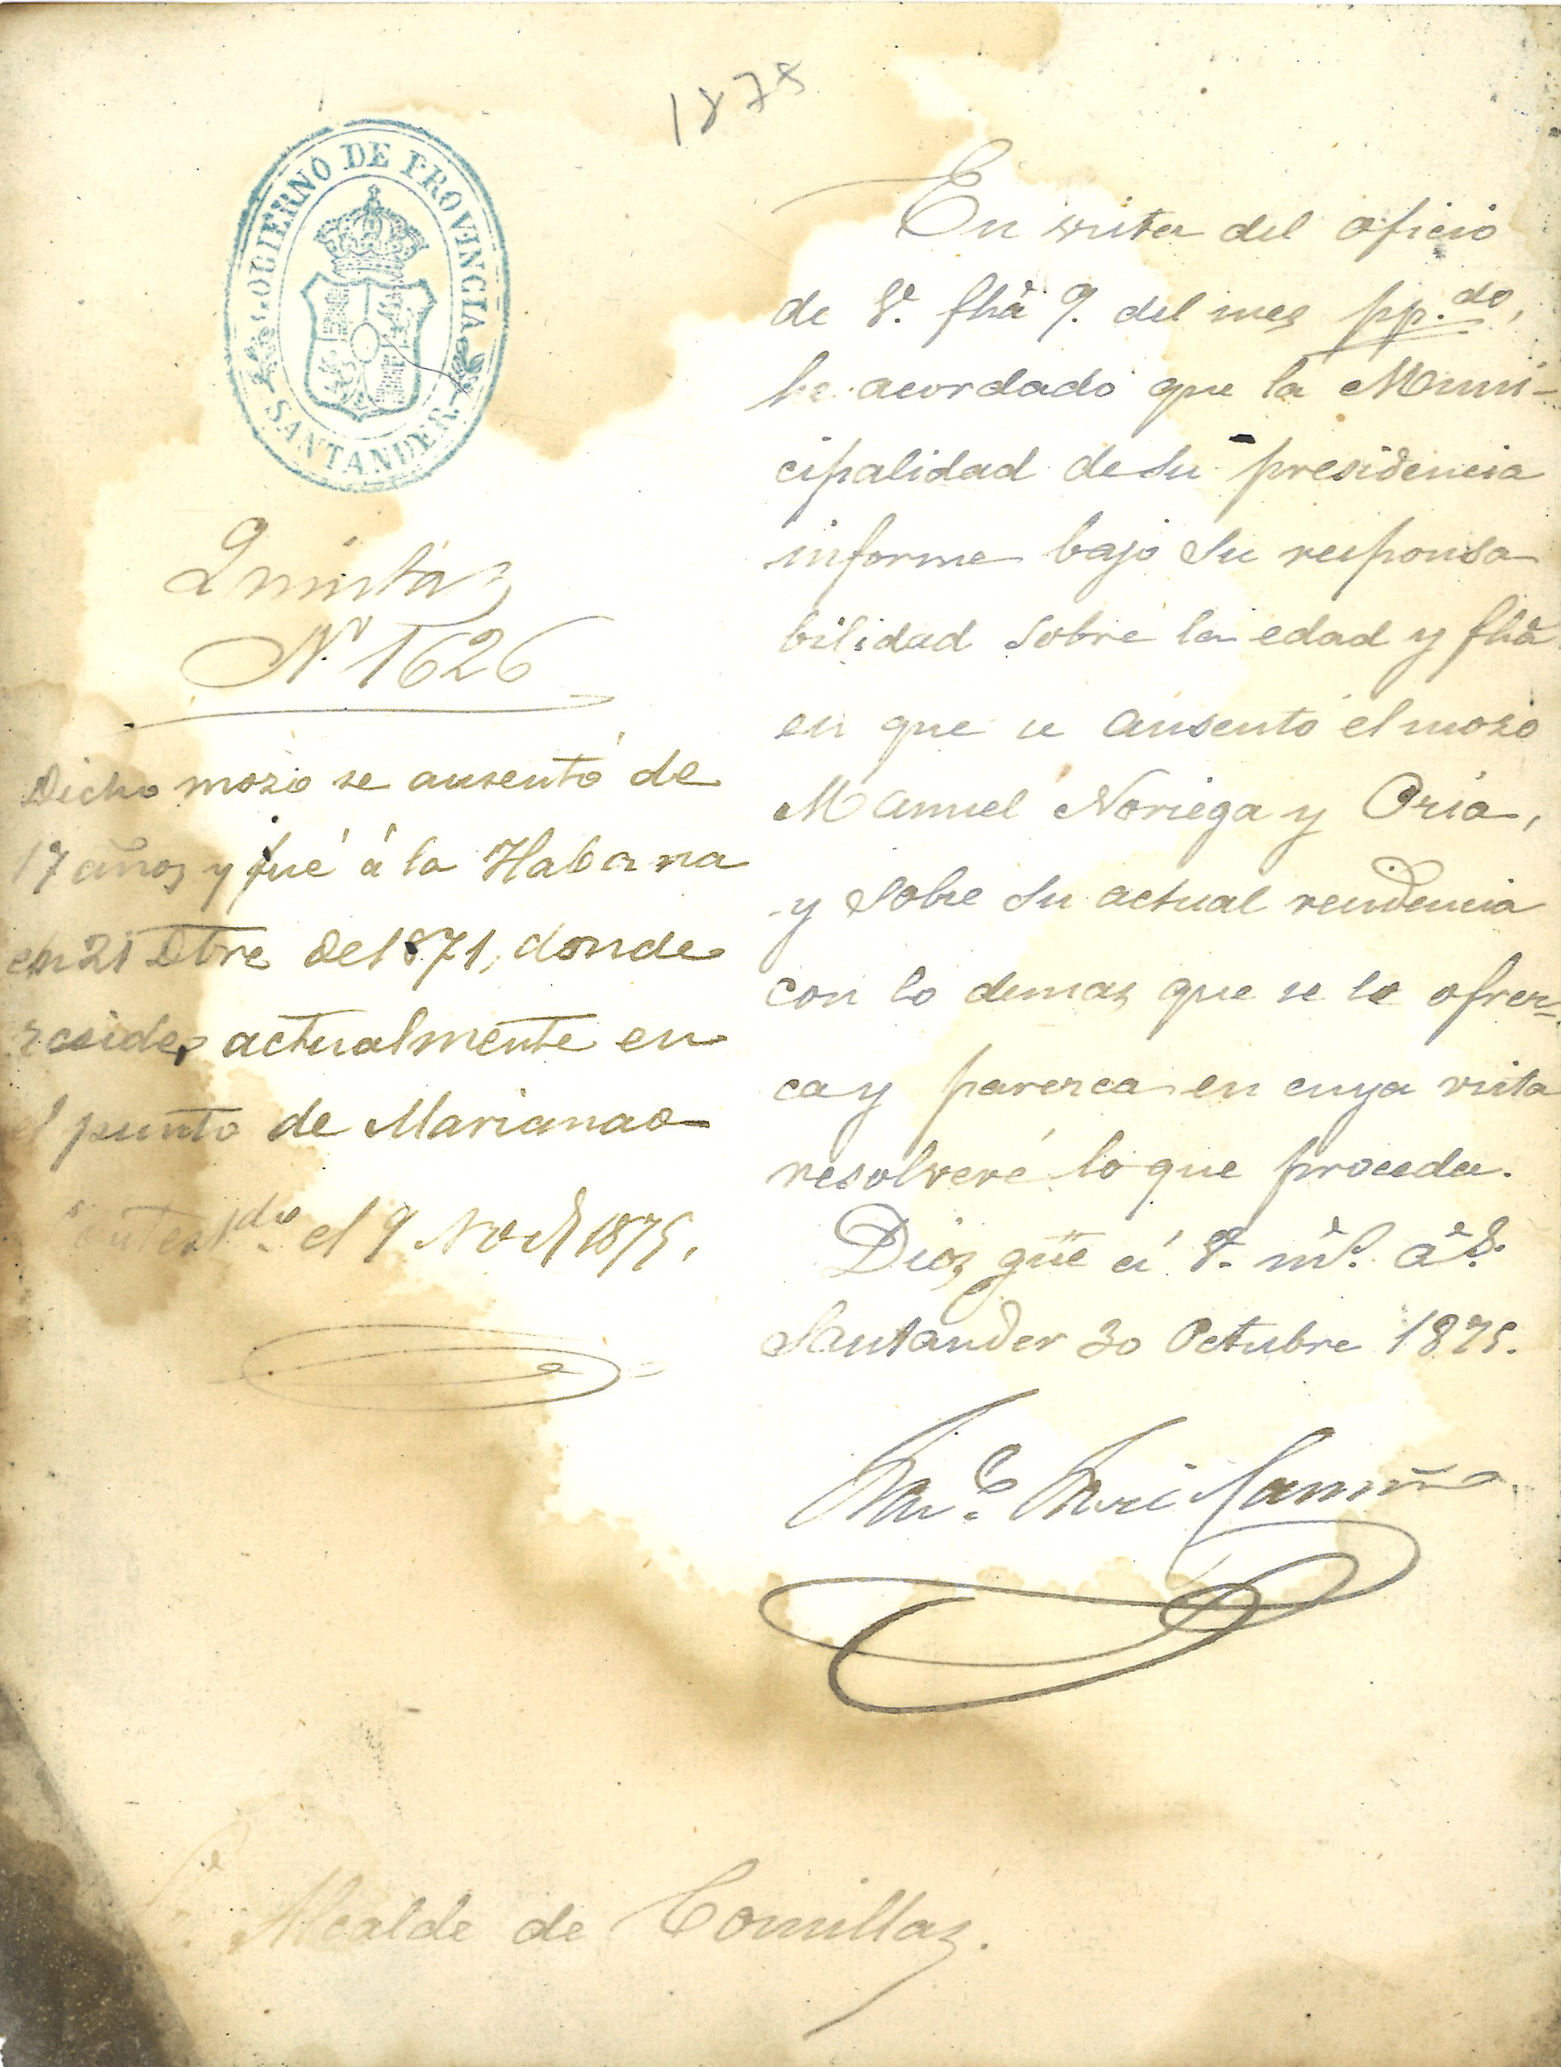 1875
GOBIERNO DE PROVINCIA
SANTANDER
Quintas
N.º 1626
Dicho mozo se ausentó de
17 años y fué á la Habana
en 21 Dbre de 1871, donde
reside, actualmente en
el punto de Marianao
Contest.do el 9 Nov 1875.
En vista del oficio
de V. fhã 9. del mes pp.do,
he acordado que la Muni-
cipalidad de su presidencia
informe bajo su responsa
bilidad sobre la edad y fhã
en que se ausentó el mozo
Manuel Noriega y Oria,
y sobre su actual residencia
con lo demas que se le ofrez-
ca y parezca en cuya vista
resolveré lo que proceda.
Dios güe á V. m.s a.s
Santander 30 Octubre 1875.
Sr. Alcalde de Comillas.